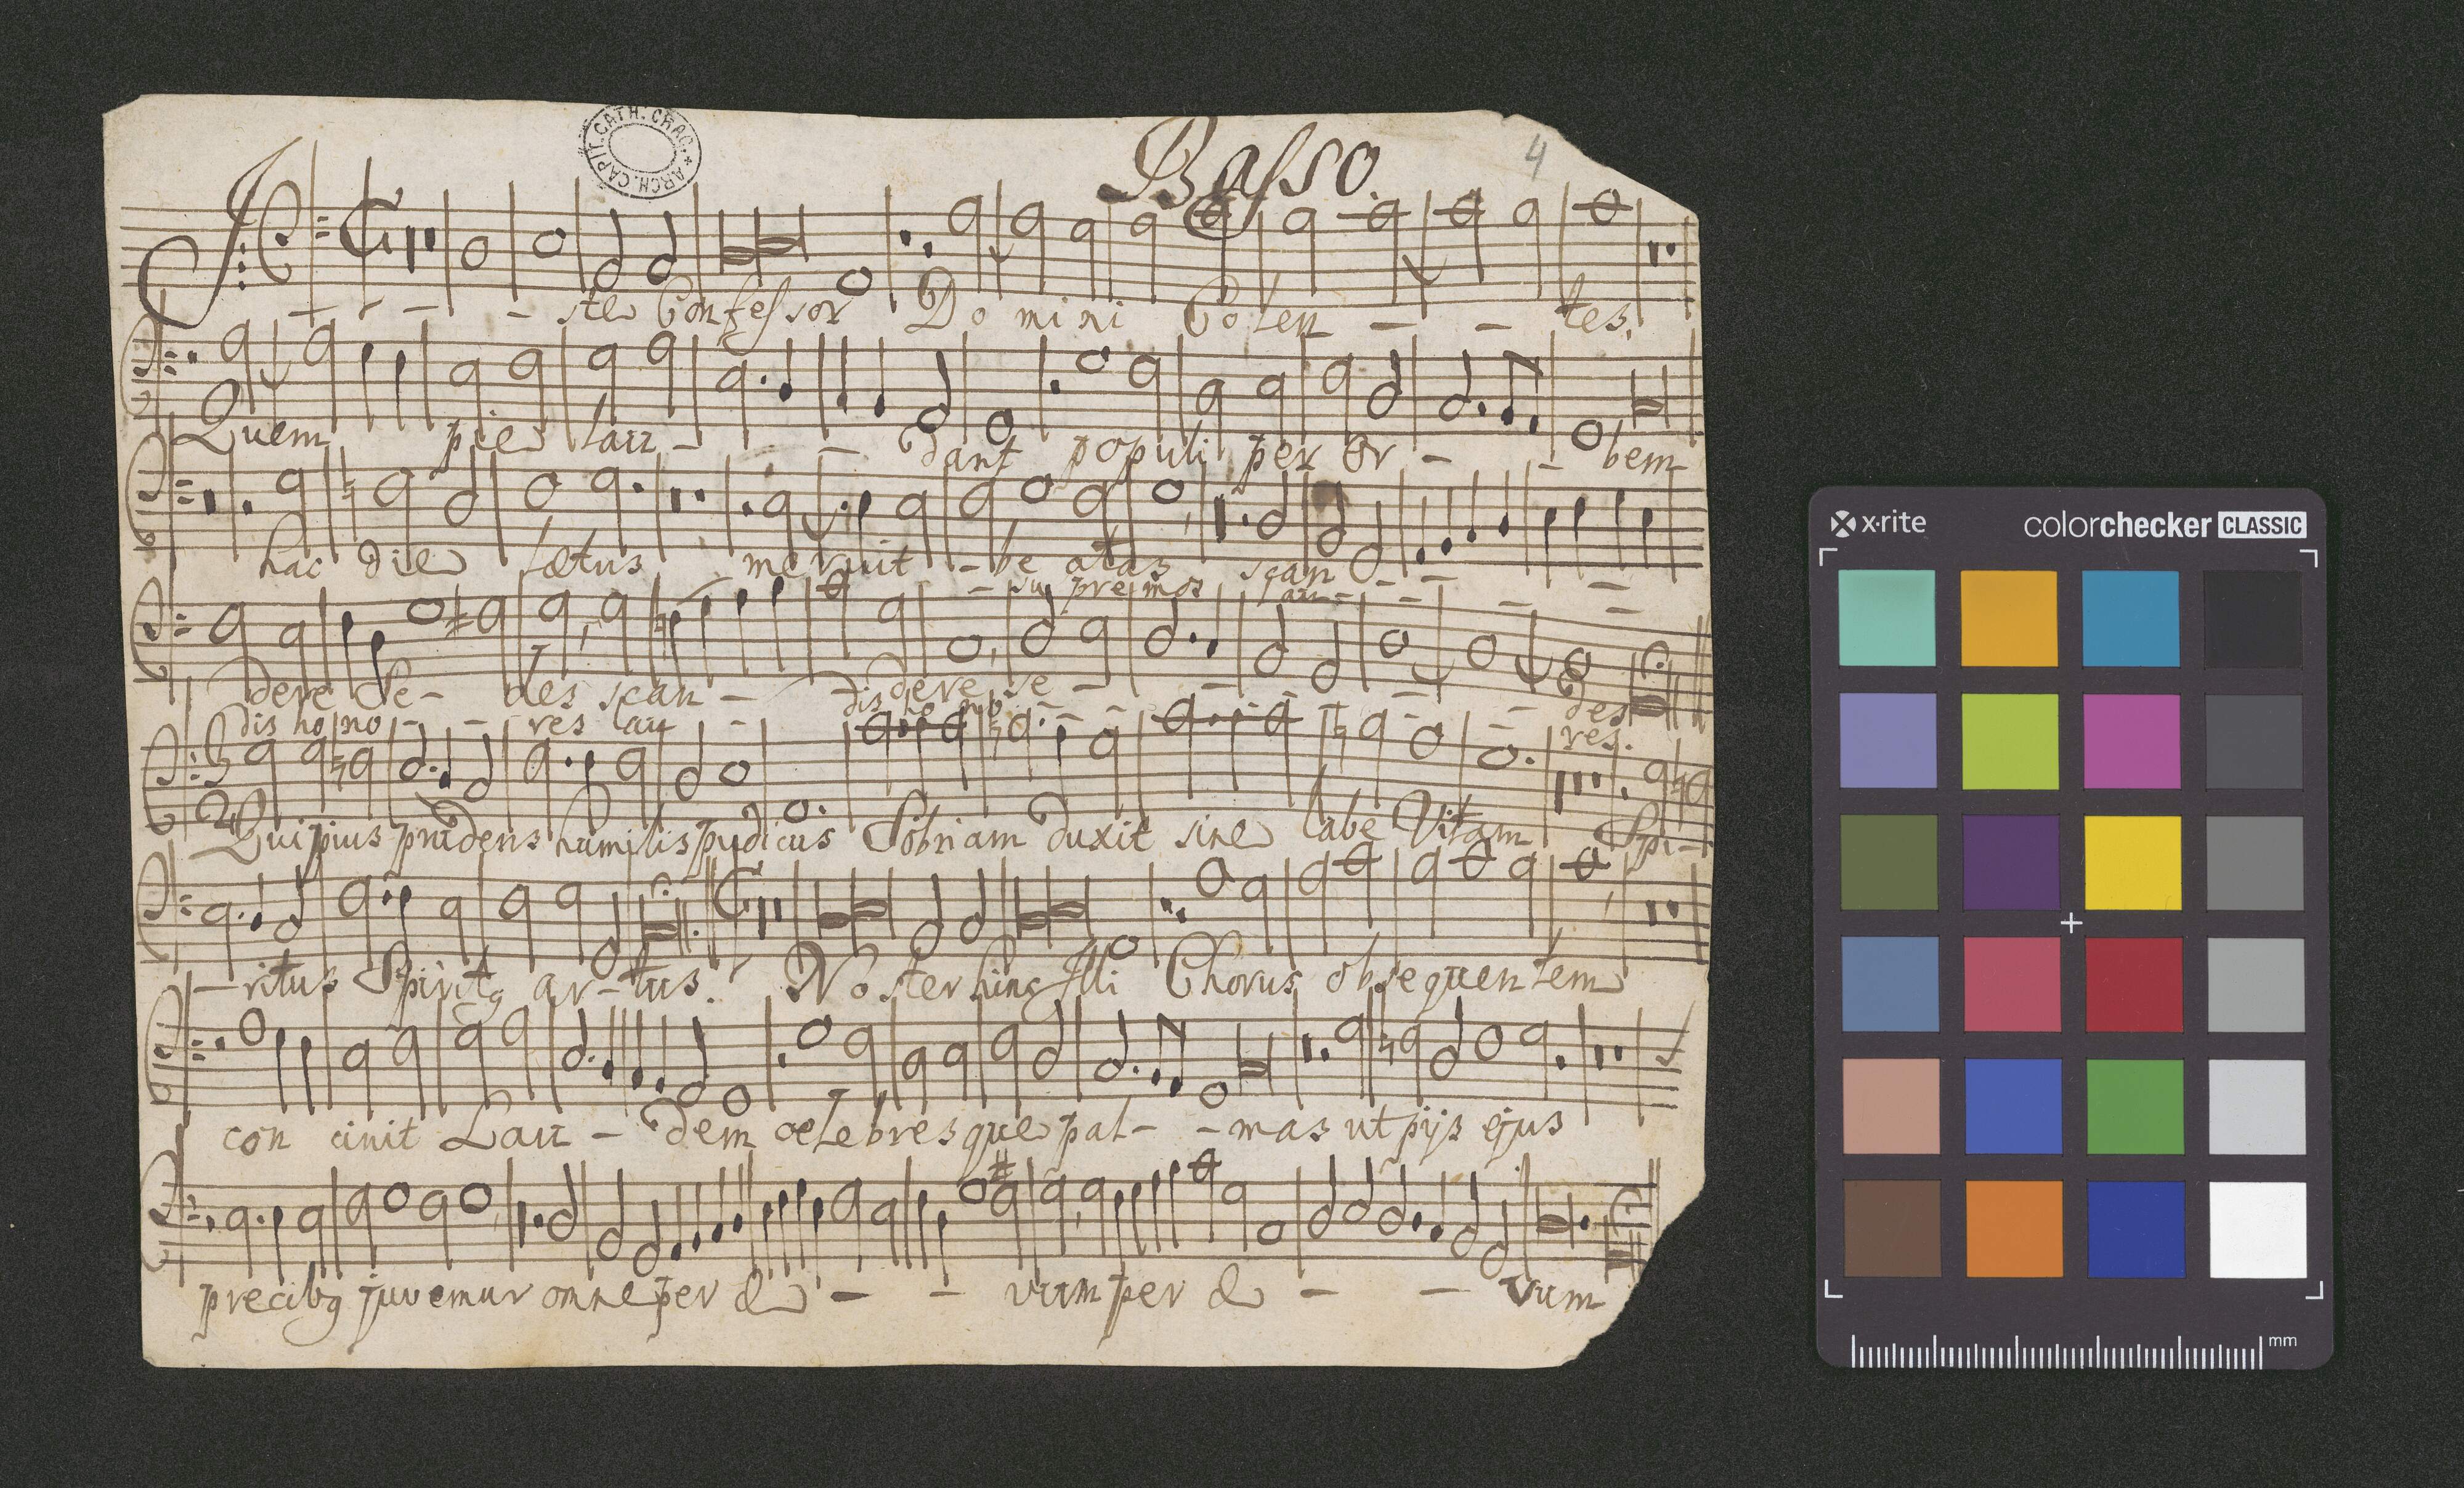 ARCH. CAPIT. CATH. CRAC.
Basso.
4
Iste Confessor Domini Colen - - tes,
Quem pie lau - - dant populi per or - - bem
hac die lætus meruit - be atas scan - -
- su premos lau - - - -
dere se - des scan - dere se - - - - des
dis ho no - - res lau - dis ho no - - - - res.
Qui pius prudens humilis pudicus Sobriam duxit sine labe Vitam Spi -
- ritus Spiritq ar - tus. Noster hinc Illi Chorus obsequentem
con cinit Lau - dem celebresque pal - - mas ut pijs ejus
precibq juvemur omne per æ - - vum per æ - - vum
x-rite
colorchecker CLASSIC
mm